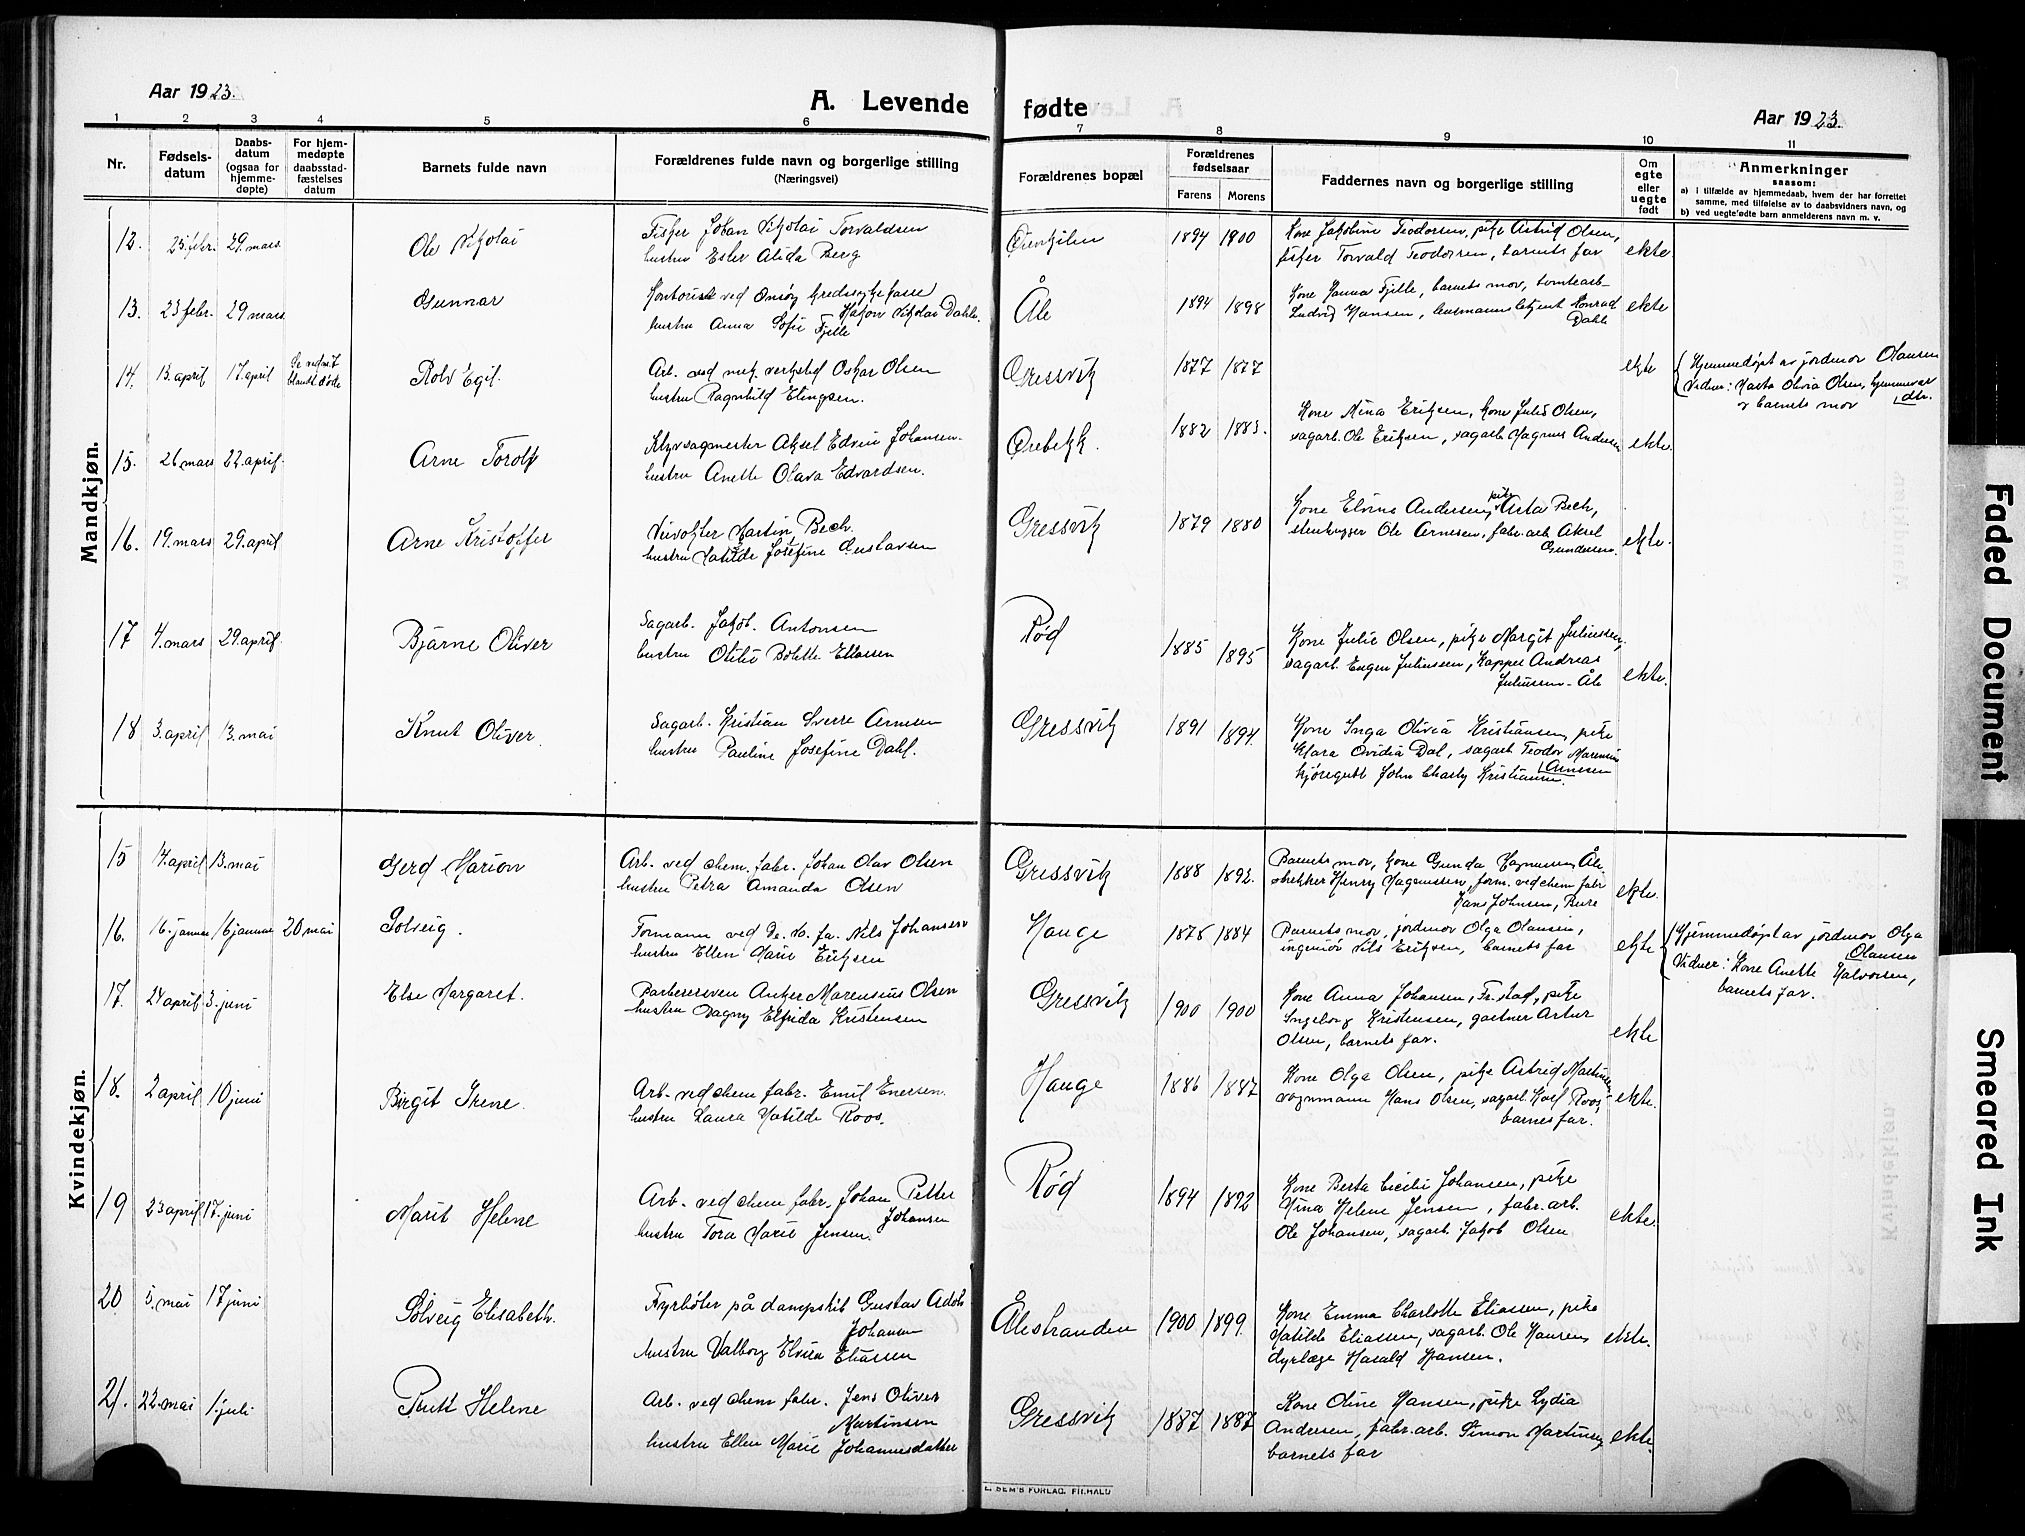 Aar 1923.
A. Levende
fødte
Aar 1923.
1 2 3 4 5 6 7 8 9 10 11
Nr.
Fødsels-
datum
Daabs-
datum
(ogsaa for
hjemme-
døpte)
For hjem-
medøpte
daabsstad-
fæstelses
datum
Barnets fulde navn
Forældrenes fulde navn og borgerlige stilling
(Næringsvei)
Forældrenes bopæl
Forældrenes
fødselsaar
Farens Morens
Faddernes navn og borgerlige stilling
Om
egte
eller
uegte
født
Anmerkninger
saasom:
a) i tilfælde av hjemmedaab, hvem der har forrettet
samme, med tilføielse av to daabsvidners navn, og
b) ved uegte fødte barn anmelderens navn m. v.
Mandkjøn.
12. 25. febr. 29. mars Ole Nikolai
Fisker Johan Nikolai Torvaldsen
hustru Ester Alida Berg
1894 1900
Kone Jakobine Teodorsen, pike Astrid Olsen,
fisker Torvald Teodorsen, barnets far
ekte.
13. 23 febr. 29 mars Gunnar
Kontorist ved Onsøy kredssykekasse
Håkon Nikolai Dahle.
hustru Anna Sofie Fjelle
Åle 1894 1898
Kone Hanna Fjelle, barnets mor, tomtearb.
Ludvig Hansen, Konrad
Dahle
ekte
14. 13. april 17. april
Se ved nr.
blandt døde
Rolv Egil.
Arb. ved mek. verksted Oskar Olsen
hustru Ragnhild Elingsen.
Gressvik 1877 1877
ekte
Hjemmedøpt av jordmor Olausen
Vidner: Marta Olivia Olsen, hjemmevær.
dtr.
og barnets mor
15. 26. mars 22. april. Arne Torolf
Klyvsagmester Aksel Edvin Johansen.
hustru Anette Olava Edvardsen.
Ørebekk. 1882 1883.
Kone Nina Eriksen, kone Julie Olsen,
sagarb. Ole Eriksen, sagarb. Magnus Andersen
ekte.
16. 19. mars 29. april Arne Kristoffer
Martin Bech.
hustru Matilde Josefine Gustavsen
Gressvik 1879 1880
Kone Elvine Andersen, pike Asta Bech,
stenhugger Ole Arnesen, fabr. arb. Aksel
Gundersen.
ekte.
17 4. mars 29. april. Bjarne Oliver
Sagarb. Jakob. Antonsen
hustru Otilie Bolette Ellassen
Rød 1885 1895
Kone Julie Olsen, pike Margit Juliussen,
sagarb. Eugen Juliussen, Kapper Andreas
Juliussen - Åle
ekte.
18 3. april 13. mai Knut Oliver.
Sagarb. Kristian Sverre Arnesen
hustru Pauline Josefine Dahl.
Gressvik 1891 1894.
Kone Inga Olivia Kristiansen, pike
Klara Ovidia Dal, sagarb Teodor Marensius
Arnesen
kjøregutt John Charly Kristiansen.
Kvindekjøn.
15 14. april 13. mai Gerd Marion
Arb. ved chem. fabr. Johan Olav Olsen
hustru Petra Amanda Olsen
Gressvik 1888 1892.
Barnets mor, kone Gunda Magnussen Åle.
blekker Henry Magnussen, form. ved chem fabr
Hans Johnsen, Bure
ekte.
16. 16. januar 16 januar 20 mai Solveig.
Formann ved De. No. fa. Nils Johansen
hustru Ellen Marie Eriksen
Hauge 1878 1884
Barnets mor, jordmor Olga Olausen,
ingeniør Nils Eriksen, barnets far
ekte
Hjemmedøpt av jordmor Olga
Olausen
Vidner: Kone Anette Halvorsen,
barnets far.
17. 24 april 3. juni Else Margaret.
Barbersvenn Anker Marensius Olsen
hustru Dagny Elfrida Kristensen
Gressvik 1900 1900
Kone Anna Johansen, Fr.stad, pike
Ingeborg Kristensen, gartner Artur
Olsen, barnets far.
ekte
18. 2 april 10 juni Birgit Irene.
Arb. ved chem fabr. Emil Enersen.
hustru Laura Matilde Roos.
Hauge 1886 1887
Kone Olga Olsen, pike Astrid Martinsen
vognmann Hans Olsen, sagarb Karl Roos,
barnes far.
ekte.
19 23 april 17. juni Marit Helene
Arb. ved chem fabr. Johan Petter
Johansen
hustru Tora Marie Jensen.
Rød 1894 1892
Kone Berta Cecilie Johansen, pike
Nina Helene Jensen, fabr. arb.
Ole Johansen, sagarb. Jakob Olsen
ekte.
20 5. mai 17 juni Solveig Elisabeth.
Fyrbøter på dampskib Gustav Adolv
Johansen
hustru Valborg Elvira Eliassen
Ålestranden 1900 1899
Kone Emma Charlotte Eliassen, pike
Matilde Eliassen, sagarb. Ole Hansen,
dyrlæge Harald Hansen.
ekte.
21. 22. mai 1. juli Rutt Helene
Arb. ved chem fabr. Jens Oliver
Martinsen
hustru Ellen Marie Johannesdatter
Gressvik 1887 1887
Kone Oline Hansen, pike Lydia
Andresen, fabr. arb. Simon Martinsen,
barnets far
ekte.
E. SEM'S FORLAG, FR.HALD
Faded Document
Smeared Ink